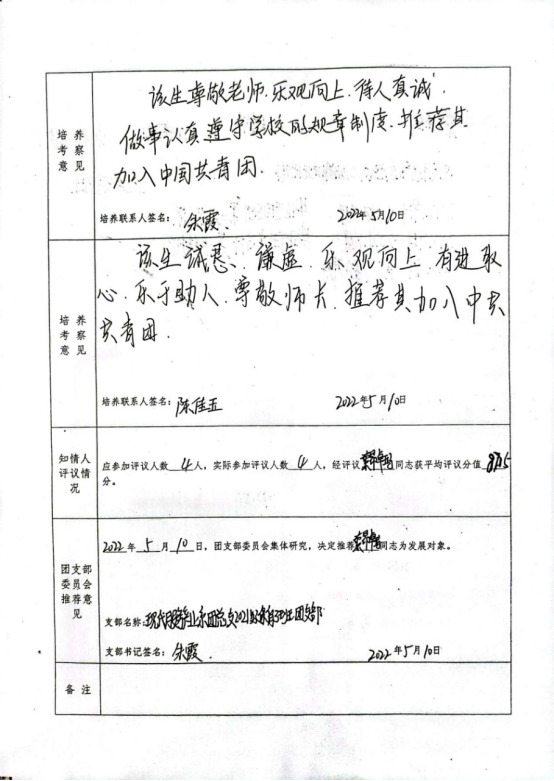 培养考察意见
该生尊敬老师.乐观向上.待人真诚.
做事认真遵守学校的规章制度.推荐其
加入中国共青团.
培养联系人签名: 余霞. 2022年5月10日
培养考察意见
该生诚恳、谦虚、乐观向上、有进取
心.乐于助人.尊敬师长.推荐其加入中共
共青团.
培养联系人签名: 陈佳五 2022年5月10日
知情人评议情况
应参加评议人数 4 人，实际参加评议人数 4 人，经评议 同志获平均评议分值
分。
团支部委员会推荐意见
2022 年 5 月 10 日，团支部委员会集体研究，决定推荐 同志为发展对象。
支部名称: 团支部
支部书记签名: 余霞. 2022年5月10日
备 注